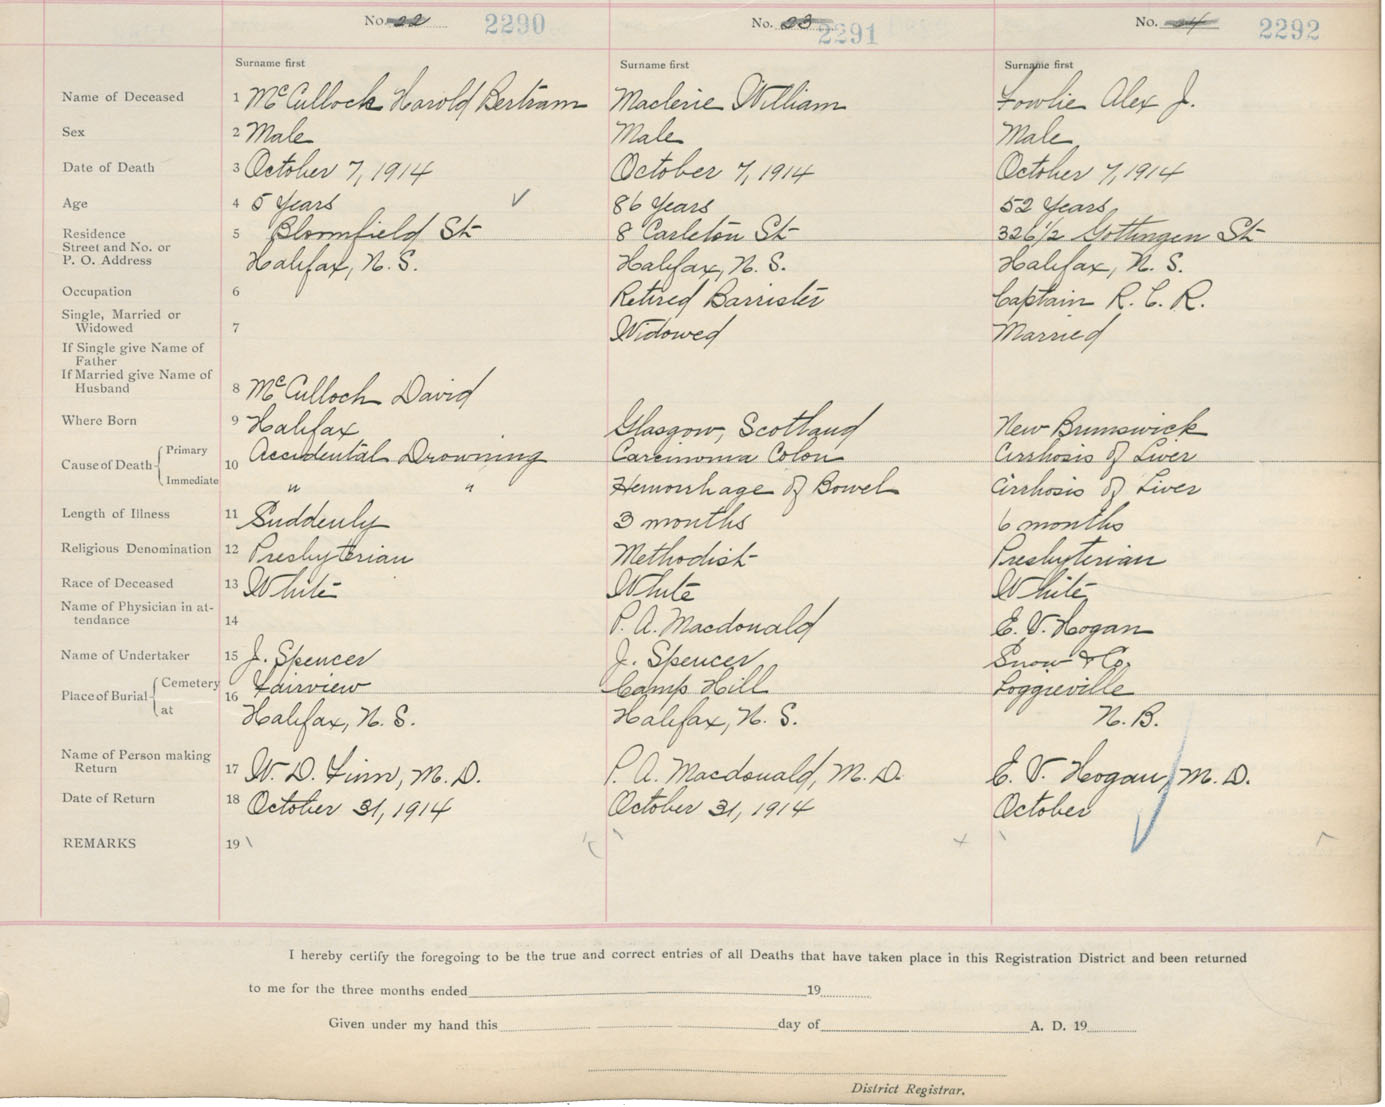 No. 22 2290 No. 23 2291 No. 24 2292
Surname first Surname first Surname first
Name of Deceased 1 McCullock Harold Bertram Maclerie William Fowlie Alex J.
Sex 2 Male Male Male
Date of Death 3 October 7, 1914 October 7, 1914 October 7, 1914
Age 4 5 Years ✓ 86 Years 52 Years
Residence 5 Bloomfield St 8 Carleton St 326 1/2 Gottingen St
Street and No. or
P. O. Address Halifax, N. S. Halifax, N. S. Halifax, N. S.
Occupation 6 Retired Barrister Captain R. C. R.
Single, Married or
Widowed 7 Widowed Married
If Single give Name of
Father
If Married give Name of
Husband 8 McCulloch David
Where Born 9 Halifax Glasgow, Scotland New Brunswick
Cause of Death Primary 10 Accidental Drowning Carcinoma Colon Cirrhosis of Liver
Immediate " " Hemorrhage of Bowel Cirrhosis of Liver
Length of Illness 11 Suddenly 3 months 6 months
Religious Denomination 12 Presbyterian Methodist Presbyterian
Race of Deceased 13 White White White
Name of Physician in at-
tendance 14 P. A. Macdonald E. V. Hogan
Name of Undertaker 15 J. Spencer J. Spencer Snow & Co.
Place of Burial Cemetery 16 Fairview Camp Hill Loggieville
at Halifax, N. S. Halifax, N. S. N. B.
Name of Person making
Return 17 W. D. Finn, M. D. P. A. Macdonald, M. D. E. V. Hogan, M. D.
Date of Return 18 October 31, 1914 October 31, 1914 October
REMARKS 19
I hereby certify the foregoing to be the true and correct entries of all Deaths that have taken place in this Registration District and been returned
to me for the three months ended 19
Given under my hand this day of A. D. 19
District Registrar.